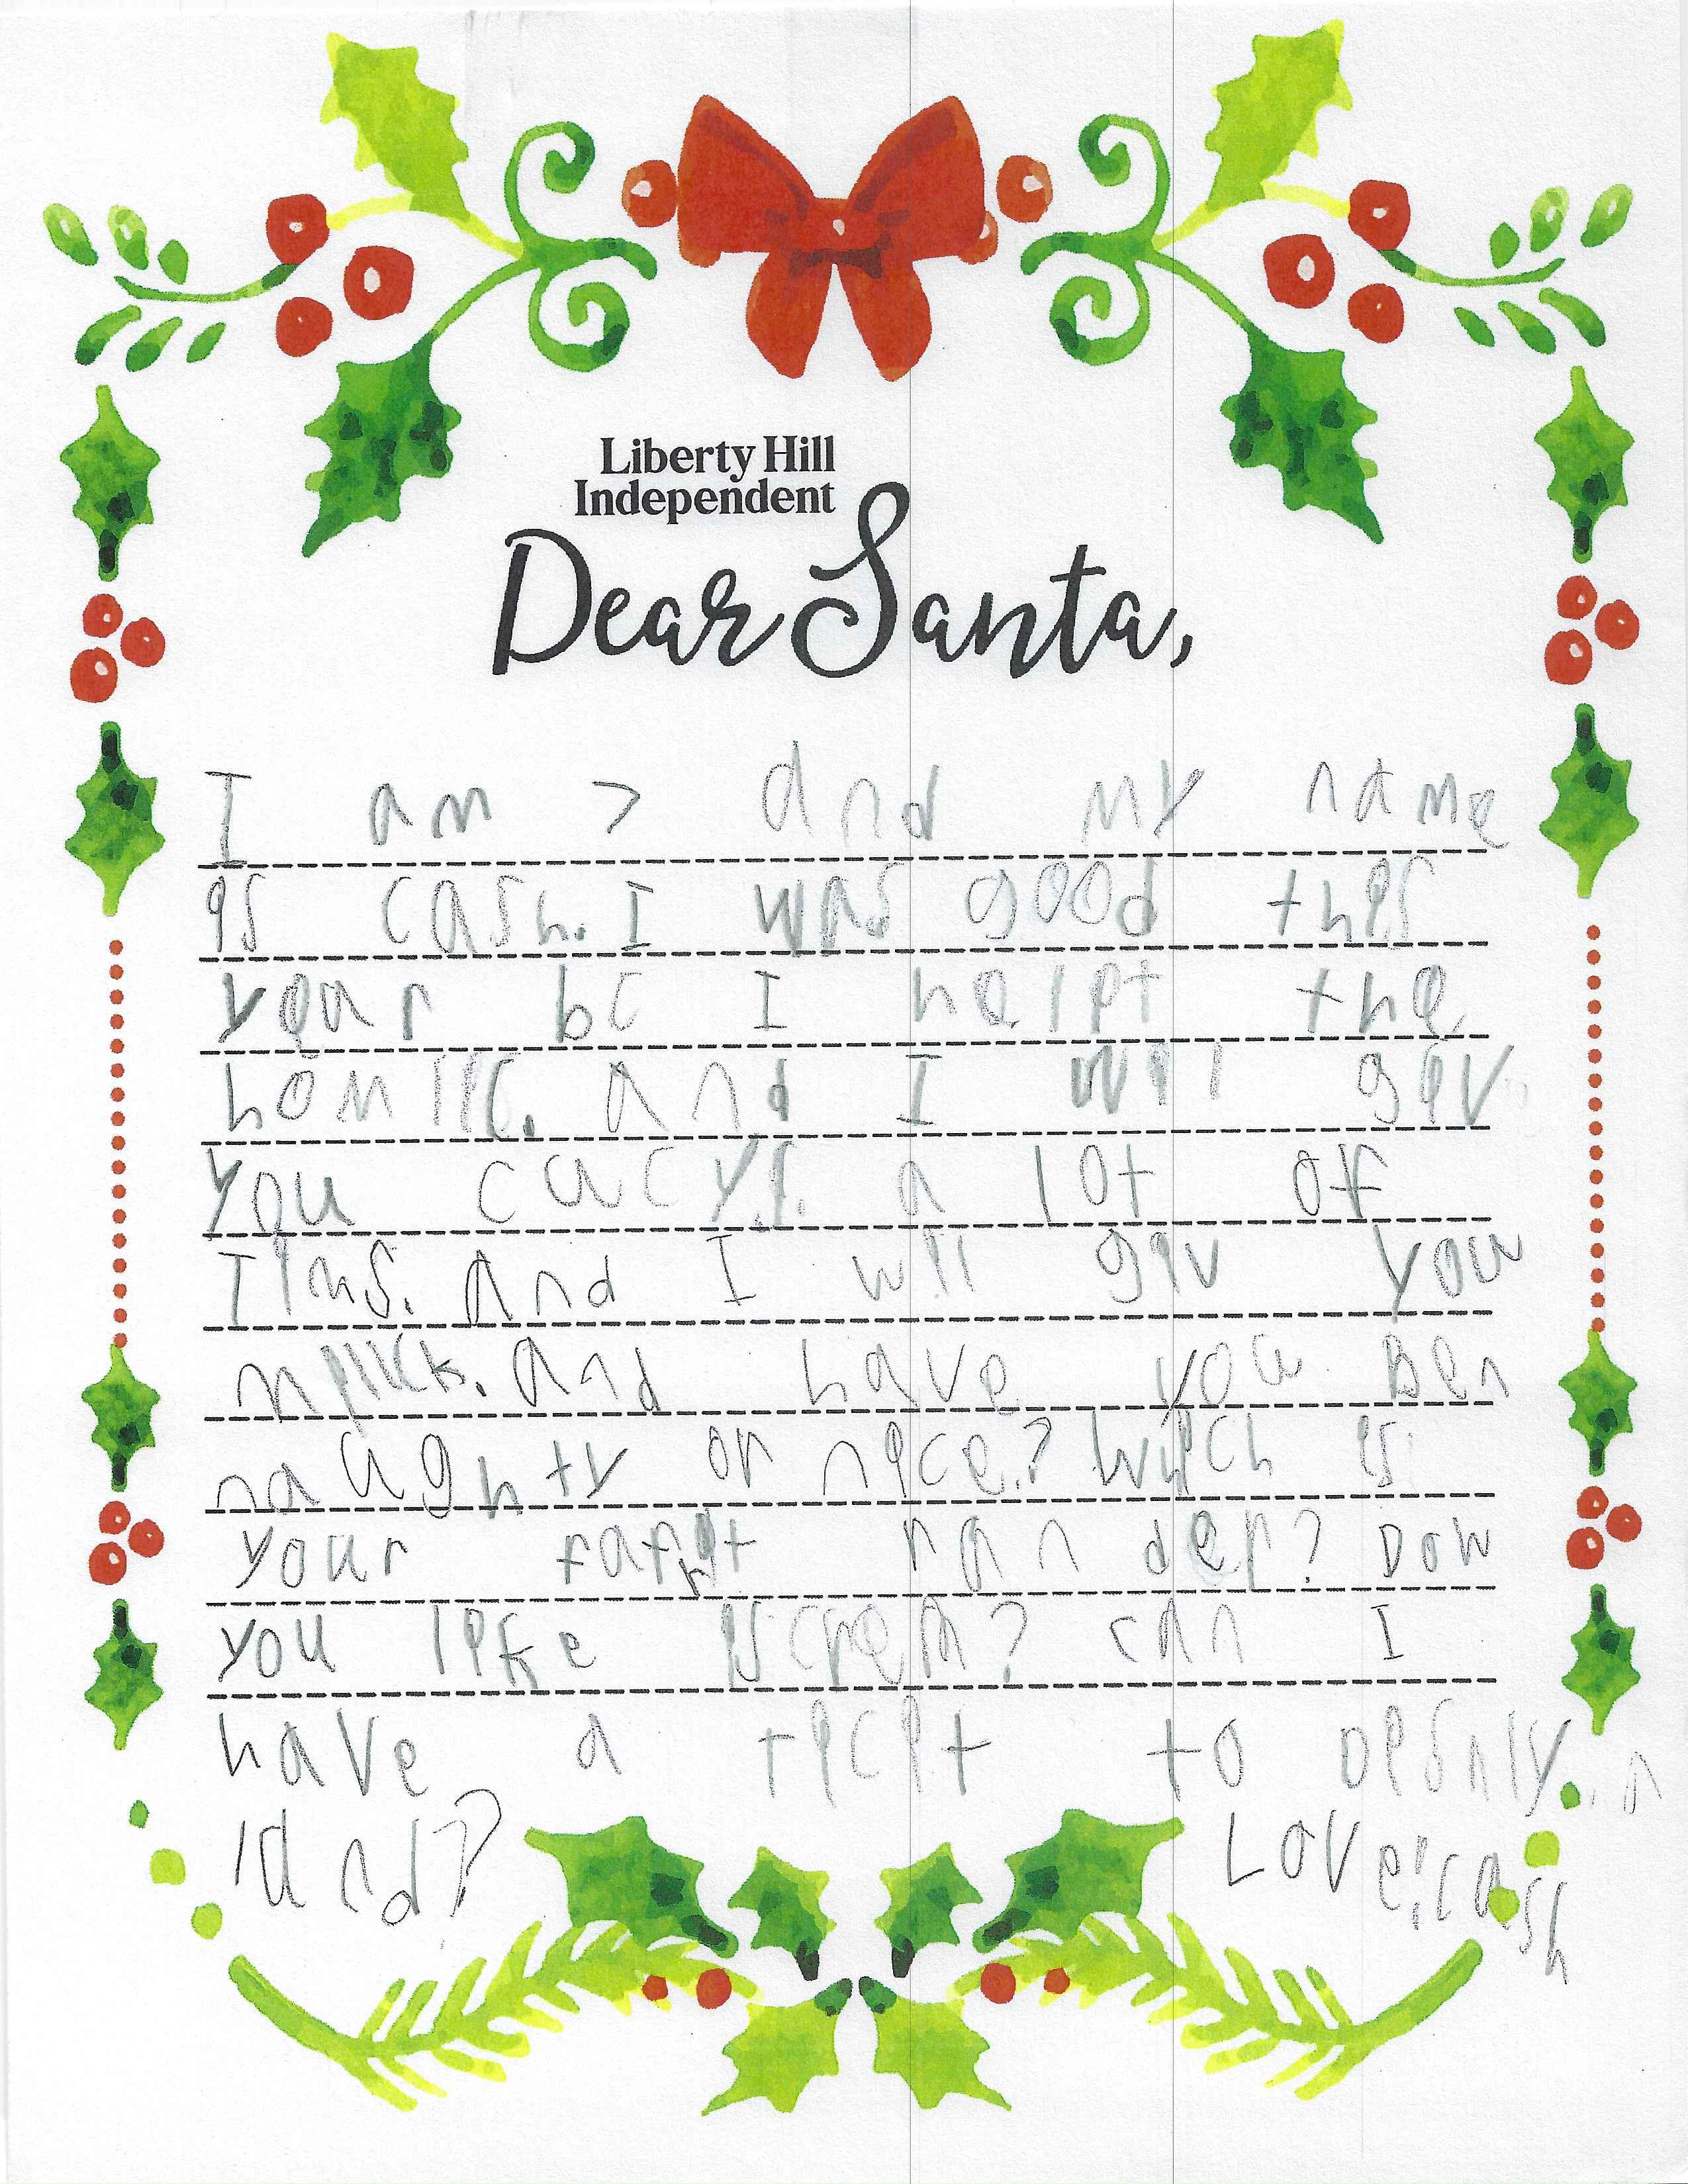 Liberty Hill
Independent
Dear Santa,
I am 7 and my name
is cash. I was good this
year bc I helpt the
and I will giv
you a lot of
Tims. And I will giv you
millck. And have you Ben
naughty or nice? Which is
your ran der? Dow
you like iscream? can I
have a ticit to
land?
Love, cash